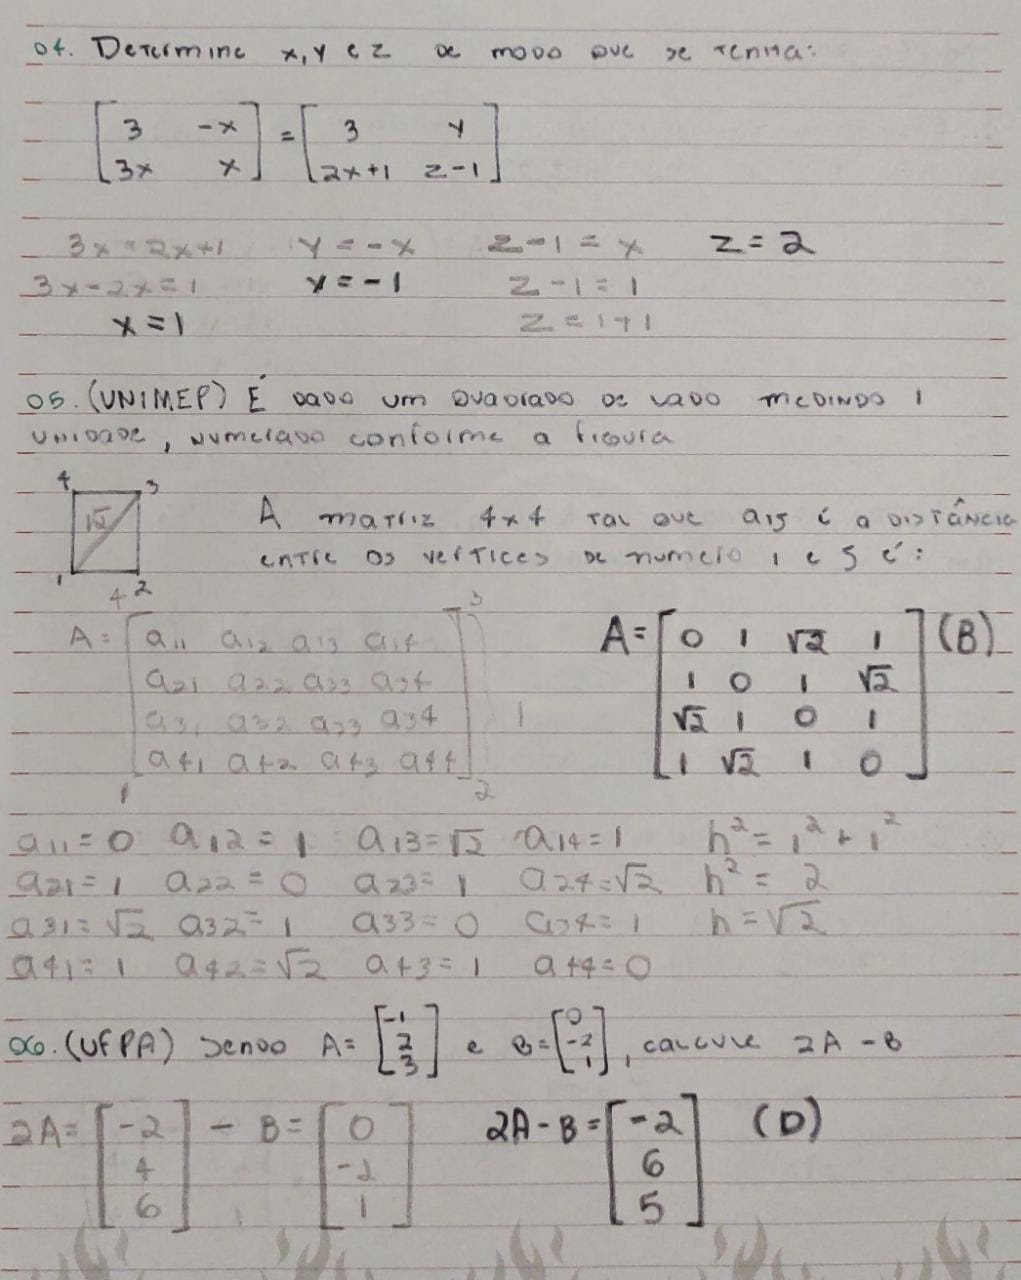 04. Determine x, y e z de modo que se tenha:
[3 -x] = [3 y]
[3x x] [2x+1 z-1]
3x = 2x+1 y = -x z-1 = x z = 2
3x-2x = 1 y = -1 z-1 = 1
x = 1 z = 1+1
05. (UNIMEP) É dado um quadrado de lado medindo 1
unidade, numerado conforme a figura
4 3
√2
1 2
A matriz 4x4 tal que a15 é a distância
entre os vertices de numero 1 e 5 é:
4 3
A = [a11 a12 a13 a14]
[a21 a22 a23 a24]
[a31 a32 a33 a34] 1
[a41 a42 a43 a44]
1 2
A = [0 1 √2 1] (B)
[1 0 1 √2]
[√2 1 0 1]
[1 √2 1 0]
a11 = 0 a12 = 1 a13 = √2 a14 = 1 h² = 1² + 1²
a21 = 1 a22 = 0 a23 = 1 a24 = √2 h² = 2
a31 = √2 a32 = 1 a33 = 0 a34 = 1 h = √2
a41 = 1 a42 = √2 a43 = 1 a44 = 0
06. (UFPA) Sendo A = [-1 2 3] e B = [0 -2 1], calcule 2A - B
2A = [-2 4 6] - B = [0 -2 1] 2A - B = [-2 6 5] (D)